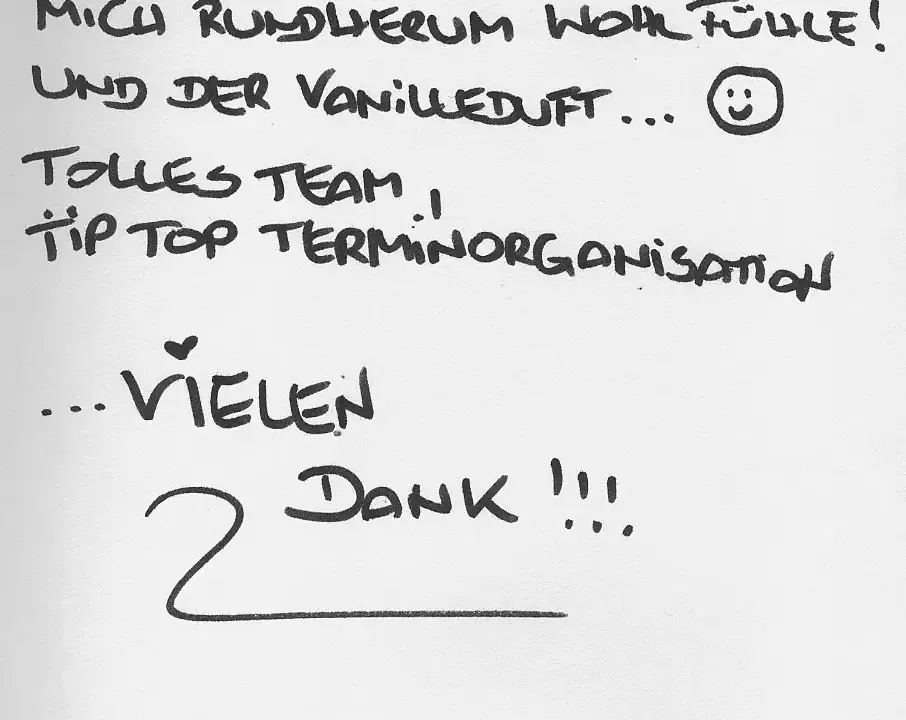 MICH RUNDHERUM WOHL FÜHLE!
UND DER VANILLEDUFT... ☺
TOLLES TEAM,
TIP TOP TERMINORGANISATION
...VIELEN
DANK!!!